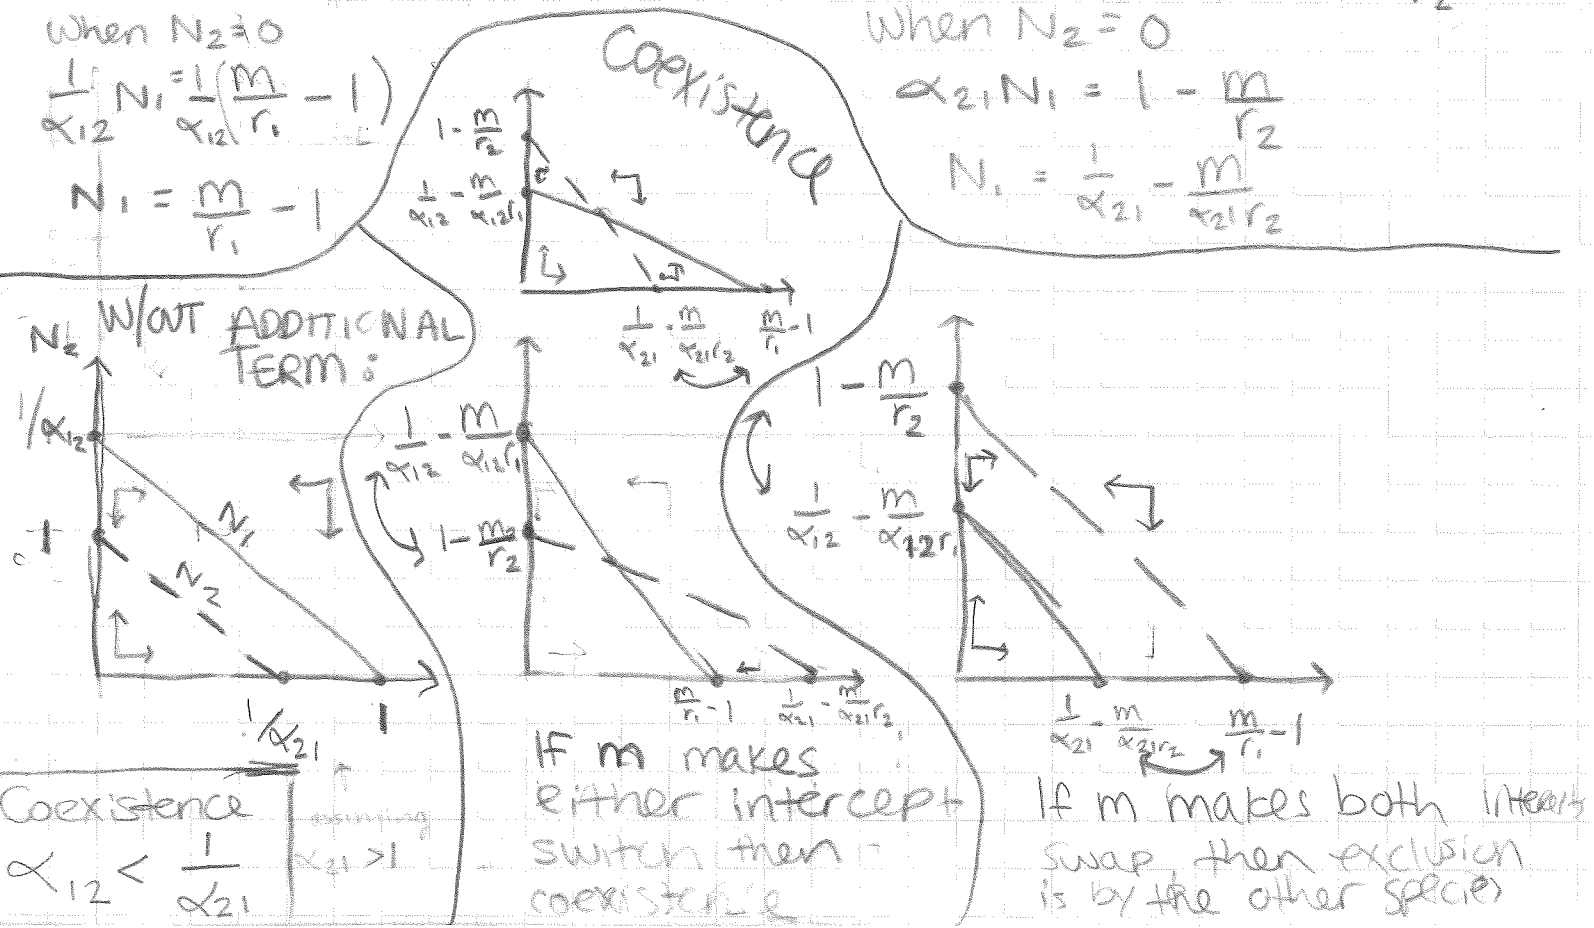 When N₂=0
1/α₁₂ N₁ = 1/α₁₂ (m/r₁ - 1)
N₁ = m/r₁ - 1
Coexistence
1 - m/r₂
1/α₁₂ - m/α₁₂r₁
1/α₂₁ - m/α₂₁r₂
m/r₁ - 1
When N₂ = 0
α₂₁N₁ = 1 - m/r₂
N₁ = 1/α₂₁ - m/α₂₁r₂
W/OUT ADDITIONAL
TERM:
N₂
1/α₁₂
1
N₁
N₂
1/α₂₁
1
Coexistence
α₁₂ < 1/α₂₁
α₂₁ > 1
1/α₁₂ - m/α₁₂r₁
1 - m/r₂
m/r₁ - 1
1/α₂₁ - m/α₂₁r₂
If m makes
either intercept
switch then
coexistence
1 - m/r₂
1/α₁₂ - m/α₁₂r₁
1/α₂₁ - m/α₂₁r₂
m/r₁ - 1
If m makes both
swap, then exclusion
is by the other species